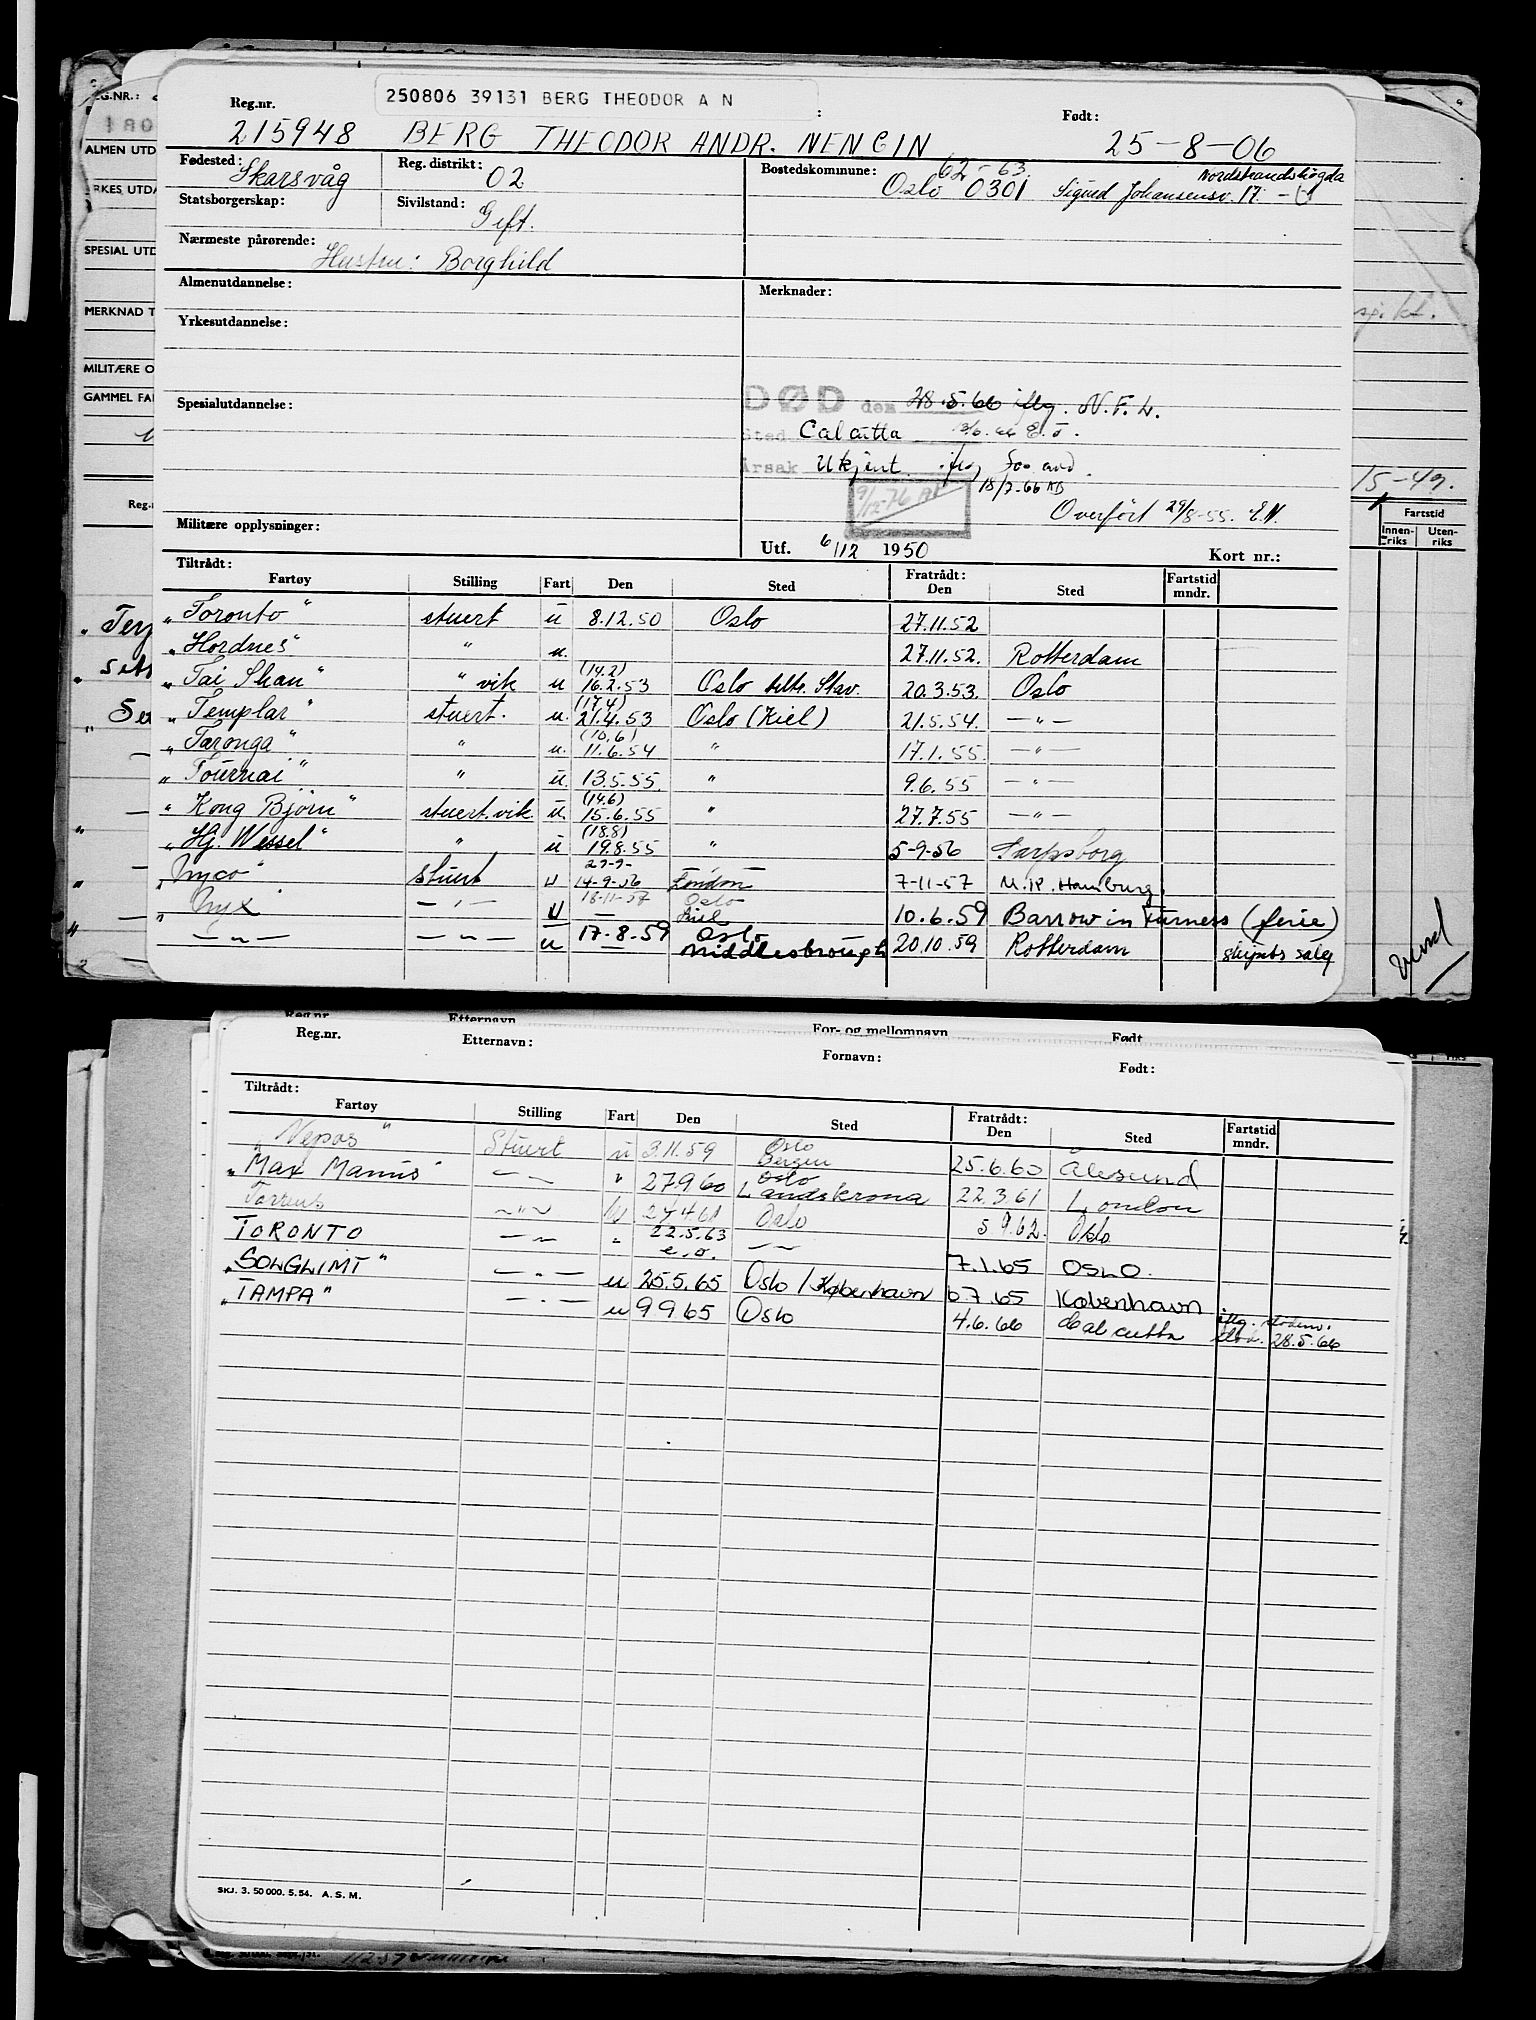 250806 39131 BERG THEODOR A N
Reg.nr. Født:
215948 BERG THEODOR ANDR. NENGIN 25-8-06
Fødested: Skarsvåg Reg. distrikt: 02 Bostedskommune: 62-63 Nordstrandshøgda
Oslo 0301 Sigurd Johansensv. 17.
Statsborgerskap: Sivilstand: Gift.
Nærmeste pårørende:
Hustru: Borghild
Almenutdannelse: Merknader:
Yrkesutdannelse:
Spesialutdannelse:
DØD den 28.5.66 iflg. N.F.L.
Sted Calcutta E.J.
Årsak Ukjent iflg
18/7-66 AB
9/12-76
Overført 29/8-55. E.N.
Militære opplysninger: Utf. 6/12 1950 Kort nr.:
Tiltrådt: Fratrådt: Fartstid
Fartøy Stilling Fart Den Sted Den Sted mndr.
"Toronto" stuert u 8.12.50 Oslo 27.11.52
"Hordnes" " u. 27.11.52. Rotterdam
(14.2)
"Tai Shan" " vik u 16.2.53 Oslo tiltr. Stav. 20.3.53. Oslo
(17.4)
"Templar" stuert. u. 21.4.53 Oslo (Kiel) 21.5.54. — " —
(10.6)
"Taronga" " u. 11.6.54 " 17.1.55. — " —
"Tournai" " u. 13.5.55. " 9.6.55 — " —
(14.6)
"Kong Bjørn" stuert.vik u. 15.6.55 " 27.7.55 — " —
(18.8)
"Hj. Wessel" " u 19.8.55 " 5-9-56 Sarpsborg
29-9-
"Nyco" stuert u 14-9-56 London 7-11-57 U.K. Hamburg.
18-11-57 Oslo
"Nyx" — " — u — Kiel 10.6.59 Barrow in Furness (ferie)
— " — — " — u 17-8-59 Oslo 20.10.59 Rotterdam skipets salg
Middlesbrough
EG.NR.:
ALMEN UTD
RKES UTDA
SPESIAL UTD
MERKNAD T
MILITÆRE O
GAMMEL FA
15-49.
Fartstid
Innen-riks Uten-riks
vend
Reg.nr. Etternavn For- og mellomnavn Født
Reg.nr. Etternavn: Fornavn: Født:
Tiltrådt: Fratrådt: Fartstid
Fartøy Stilling Fart Den Sted Den Sted mndr.
"Nepos" Stuert u 3.11.59 Oslo Bergen 25.6.60 Ålesund
"Max Manus" — " — " 27.9.60 Oslo Landskrona 22.3.61 London
Torrens — " — u 27.4.61 Oslo 5.9.62. Oslo
TORONTO — " — " 22.5.63 e.o. — " — 7.1.65 OSLO.
"SOLGLIMT" — " — u 25.5.65 Oslo / København 6.7.65 København
"TAMPA" — " — u 9.9.65 Oslo 4.6.66 Calcutta iflg. 28.5.66
SKJ. 3. 50 000. 5. 54. A. S. M.